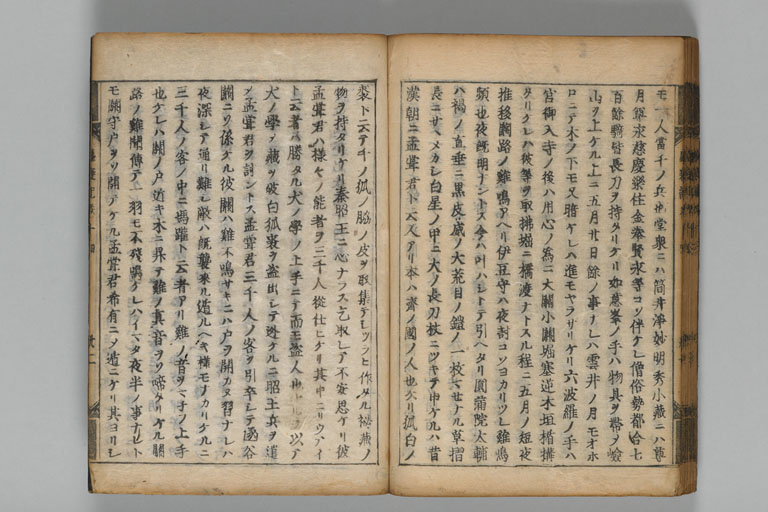 モ一人當千ノ兵也堂衆ニハ筒井淨妙明秀小藏ニハ尊
月尊永慈慶樂住金拳賢永等コソ伴ケレ僧俗勢都合七
百餘騎皆長刀ヲ持タリケリ如意峯ノ手ハ物具ヲ帶ノ嶮
山ヲ上ケル上ニ五月廿日餘ノ事ナレハ雲井ノ月モオホ
ロニテ木ノ下モ又暗ケレハ進モヤラサリケリ六波羅ノ手ハ
宮御入寺ノ後ハ用心ノ爲ニ大關小關堀塞逆木垣楯構
タリケレハ彼等ヲ取拂堀ニ橋渡ナトスル程ニ五月ノ短夜
推移關路ノ雞鳴アヘリ伊豆守ハ夜討コソヨカリツレ雞鳴
頻也夜既明ナントス今ハ叶ハシトテ引ヘタリ圓滿院大輔
ハ褐ノ直垂ニ黒皮威ノ大荒目ノ鎧ノ一枚マセナル草摺
長ニサヽメカシ白星ノ甲ニ大ノ長刀杖ニツキテ申ケルハ昔
漢朝ニ孟嘗君ト云人アリ本ハ齊ノ國ノ人也ケリ狐白ノ
裘ト云テ千ノ狐ノ腋ノ皮ヲ取集テシツラヒ作タル秘藏ノ
物ヲ持タリケリ秦昭王ニ心ナラス乞取レテ不安思ケリ彼
孟嘗君ハ様々ノ能者ヲ三千人從仕ヒケリ其中ニリウアイ
ト云者ハ勝タル犬ノ學ノ上手ニテ而モ盗人也ケレハ以テ
犬ノ學ノ藏ヲ破白狐裘ヲ盗出シテ逃ケルニ昭王兵ヲ遣
ノ孟嘗君ヲ討ントス孟嘗君三千人ノ客ヲ引卒シテ函谷
關ニソ係ケル彼關ハ雞不鳴サキニハ戸ヲ開カヌ習ナレハ
夜深シテ通リ難シ敵ハ既襲來ル遁ルヘキ様モナカリケルニ
三千人ノ客ノ中ニ馮驩ト云者アリ雞ノ音ヲマネフ上手
也ケレハ關ノ戸近キ木ニ昇テ雞ノ真音ヲソ啼タリケル關
路ノ雞聞傳テ一羽モ不殘鳴ケレハイマタ夜半ノ事ナレト
モ關守戸ヲソ開テケル孟嘗君希有ニノ遁ニケリ其ヨリシ